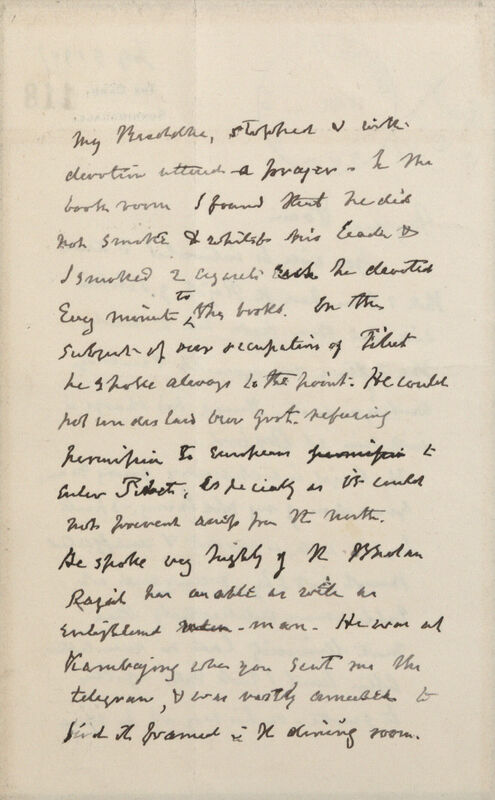 My Buddha, stopped & with
devotion uttered a prayer. In the
book room I found that he did
not smoke & whilst his leader &
I smoked 2 cigarets each he devoted
Every minute to the books. On the
subject of our occupation of Tibet
he spoke always to the point. He could
not understand our Govt. refusing
permission to Europeans permission to
enter Tibet, especially as it could
not prevent access from the north.
He spoke very highly of the Bhotan
Rajah has an able as well as
enlightened man. He was at
Kambajong when you sent me the
telegram, & was vastly amused to
find it framed in the dining room.